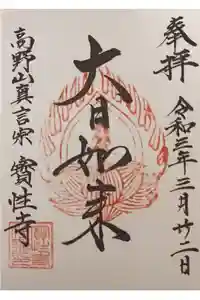 奉拝
令和三年三月廿二日
大日如来
高野山真言宗 寳性寺